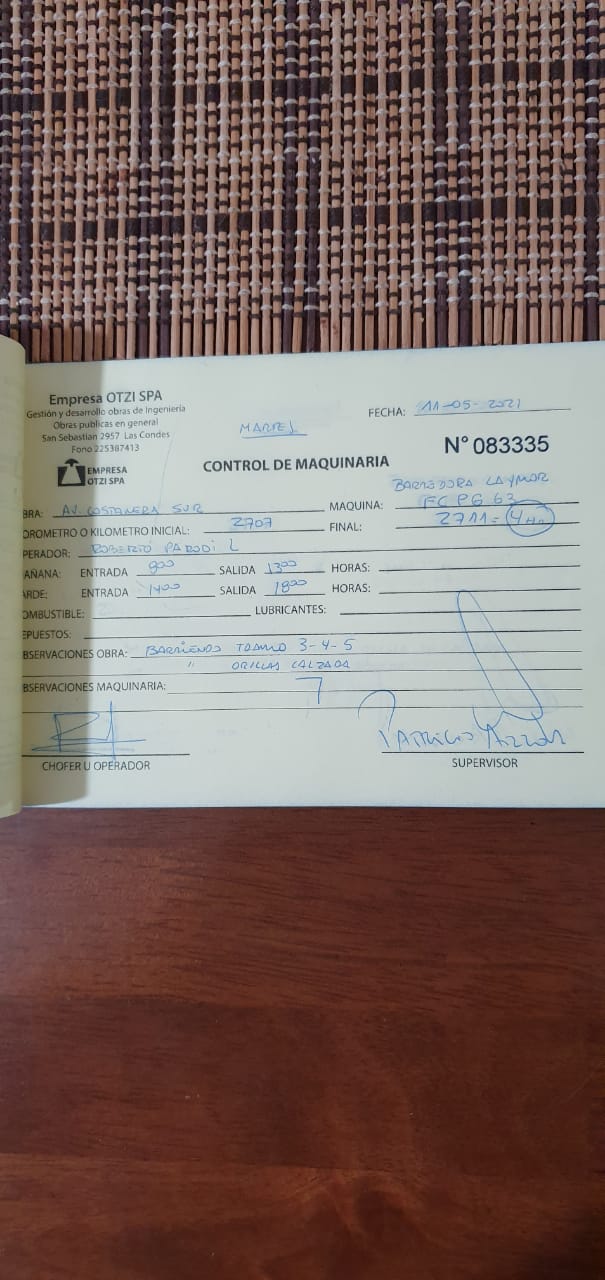 Empresa OTZI SPA
Gestión y desarrollo obras de Ingeniería
Obras publicas en general
San Sebastian 2957 Las Condes
Fono 225387413
EMPRESA
OTZI SPA
MARTES
FECHA: 11-05-2021
N° 083335
CONTROL DE MAQUINARIA
BARREDORA LAYMOR
BRA: AV. COSTANERA SUR MAQUINA: FCPG 63
OROMETRO O KILOMETRO INICIAL: 2707 FINAL: 2711 = 4 Hrs
PERADOR: ROBERTO PARODI L
AÑANA: ENTRADA 800 SALIDA 1300 HORAS:
ARDE: ENTRADA 1400 SALIDA 1800 HORAS:
OMBUSTIBLE: LUBRICANTES:
EPUESTOS:
BSERVACIONES OBRA: BARRIENDO TRAMO 3-4-5
" ORILLAS CALZADA
BSERVACIONES MAQUINARIA:
PATRICIO
CHOFER U OPERADOR
SUPERVISOR